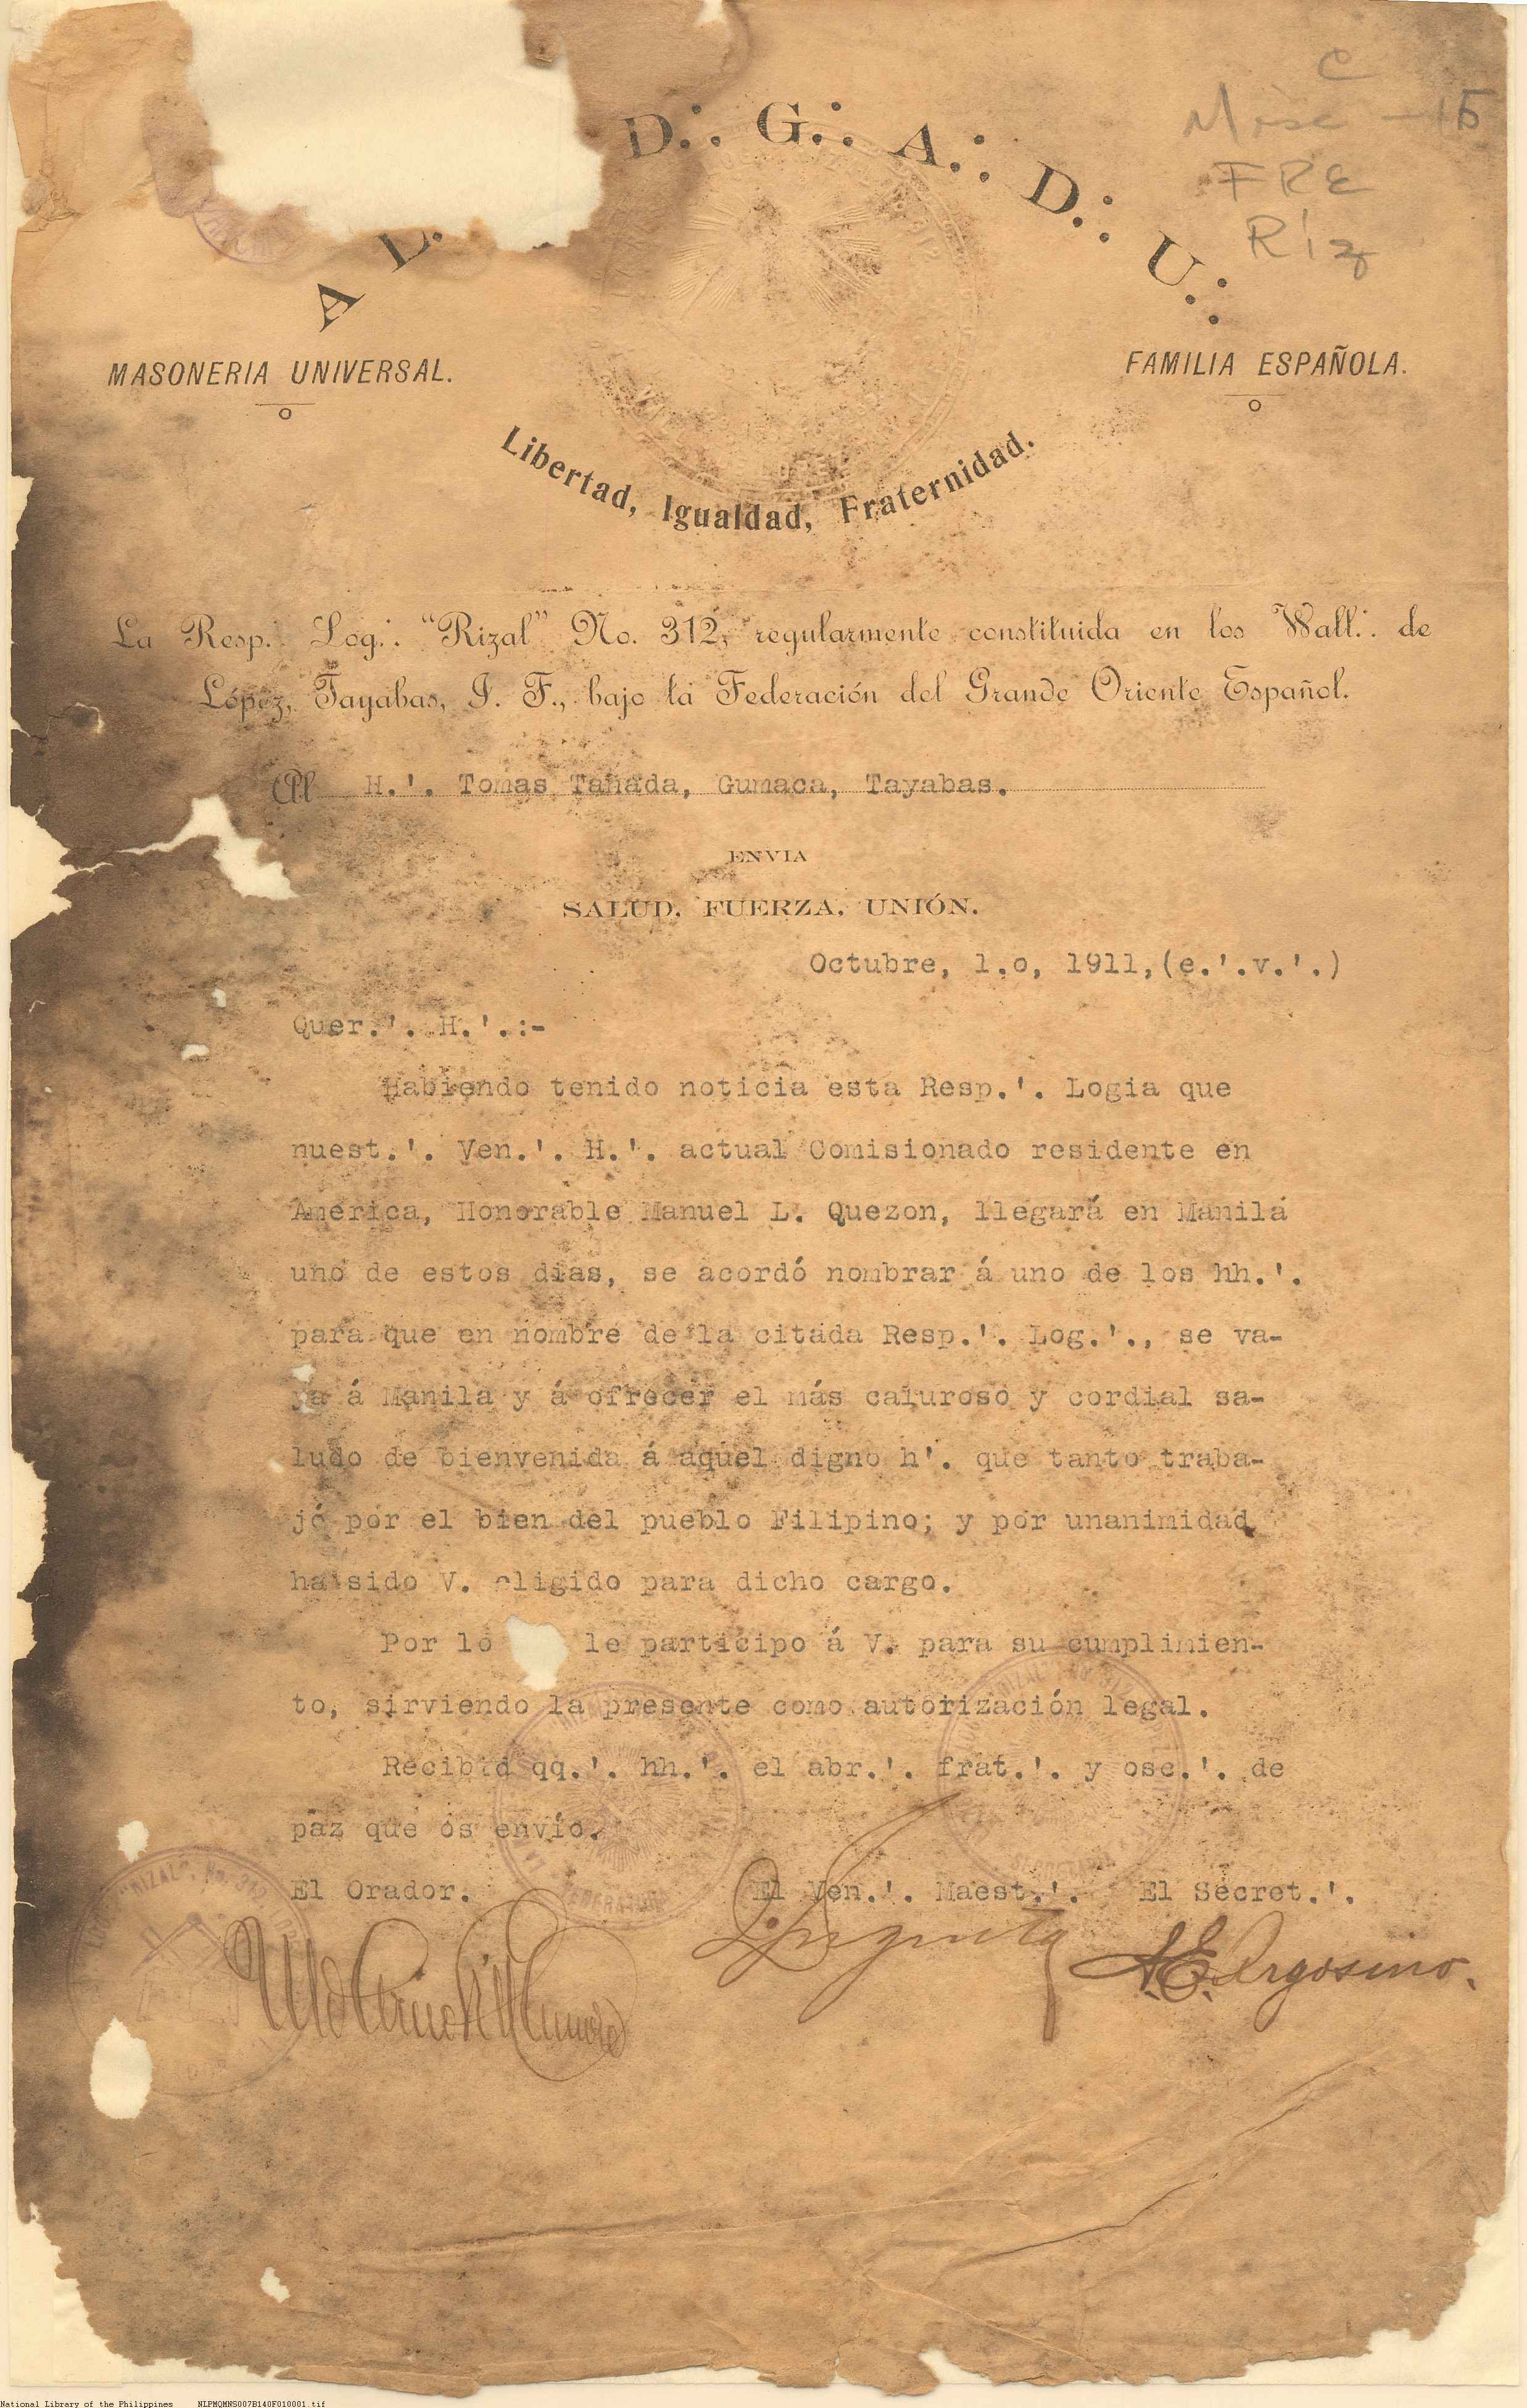 C
Misc - 15
FRE
Riz
A L. D.·. G.·. A.·. D.·. U.·.
MASONERIA UNIVERSAL.
FAMILIA ESPAÑOLA.
Libertad, Igualdad, Fraternidad.
La Resp.·. Log.·. "Rizal" No. 312, regularmente constituida en los Vall.·. de
López, Tayabas, I. F., bajo la Federación del Grande Oriente Español.
Al H.'. Tomas Tañada, Gumaca, Tayabas.
ENVIA
SALUD, FUERZA, UNIÓN.
Octubre, 1.o, 1911,(e.'.v.'.)
Quer.'. H.'.:-
Habiendo tenido noticia esta Resp.'. Logia que
nuest.'. Ven.'. H.'. actual Comisionado residente en
América, Honorable Manuel L. Quezon, llegará en Manila
uno de estos dias, se acordó nombrar á uno de los hh.'.
para que en nombre de la citada Resp.'. Log.'., se va-
ya á Manila y á ofrecer el más caluroso y cordial sa-
ludo de bienvenida á aquel digno h'. que tanto traba-
jó por el bien del pueblo Filipino; y por unanimidad
ha sido V. eligido para dicho cargo.
Por lo le participo á V. para su cumplimien-
to, sirviendo la presente como autorización legal.
Recibid qq.'. hh.'. el abr.'. frat.'. y osc.'. de
paz que os envío.
El Orador. El Ven.'. Maest.'. El Secret.'.
A. E. Argosino.
RIZAL No. 312
National Library of the Philippines NLPMQMNS007B140F010001.tif